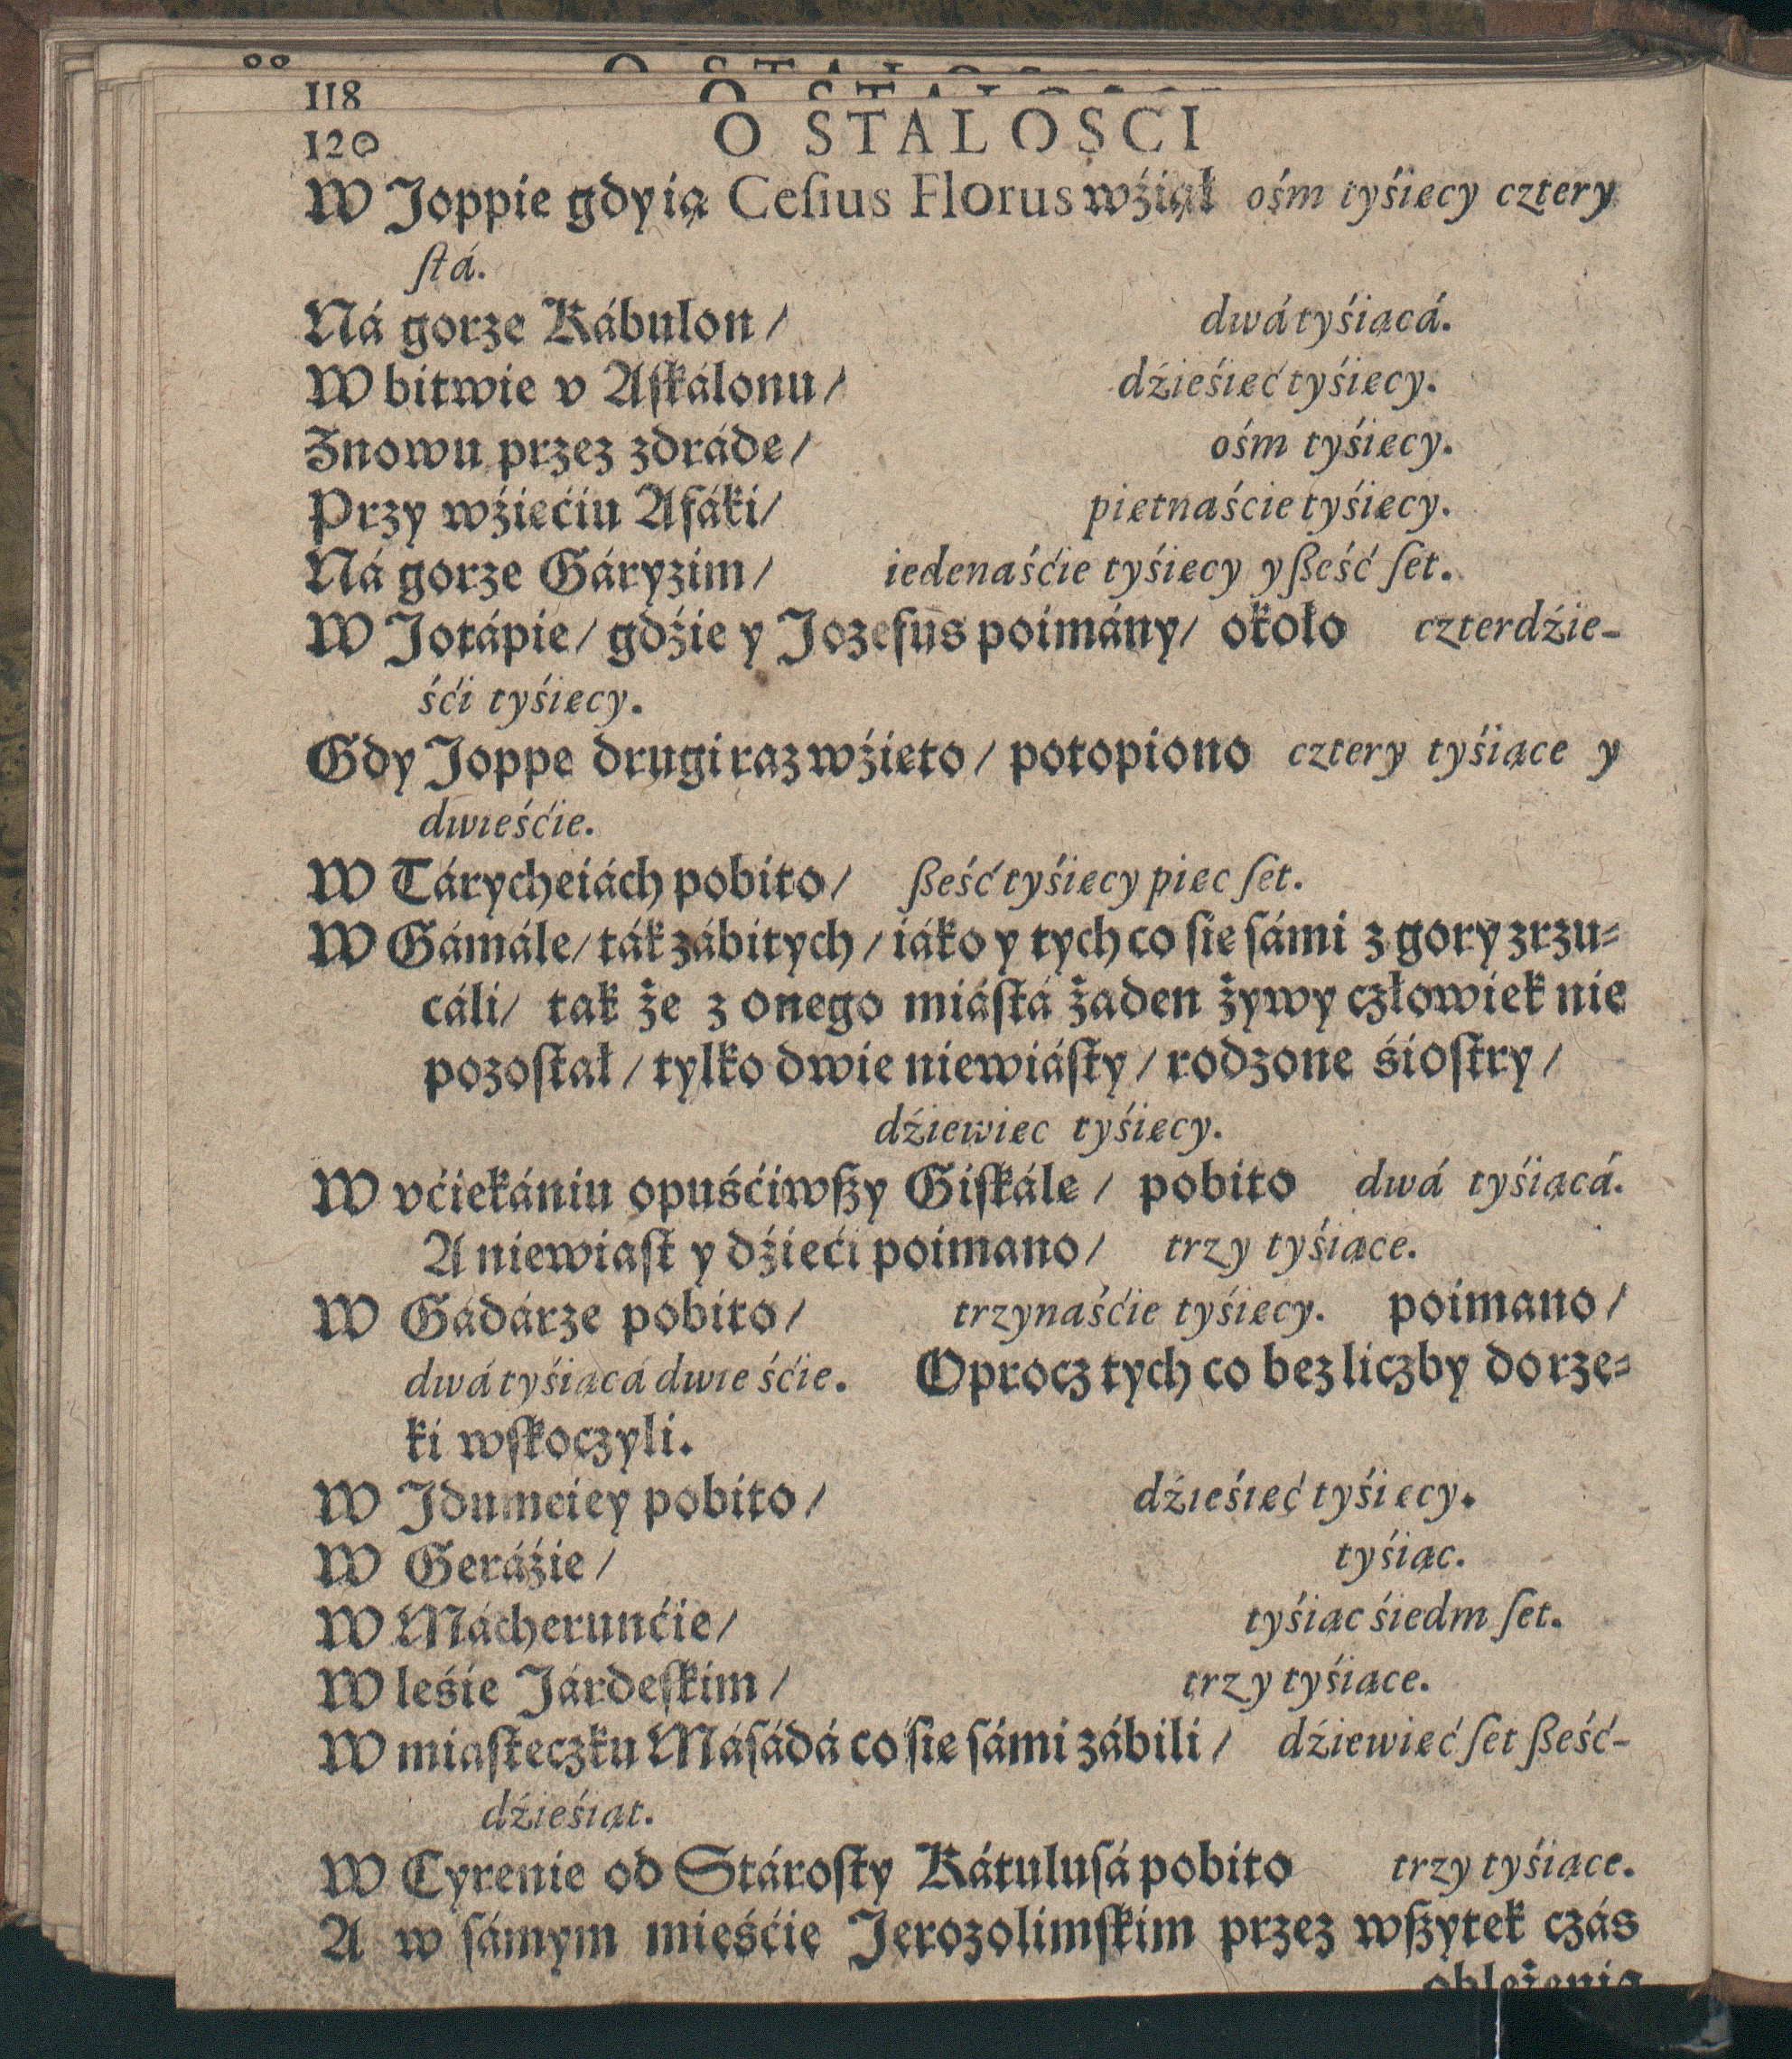 118
120 O STALOSCI
W Joppie gdy ią Cesius Florus wźiął ośm tyśięcy cztery
stá.
Ná gorze Kábulon/ dwá tyśiącá.
W bitwie v Askálonu/ dźieśięć tyśięcy.
Znowu przez zdráde/ ośm tyśięcy.
Przy wźięćiu Afáki/ piętnaście tyśięcy.
Ná gorze Gáryzim/ iedenaśćie tyśięcy y sześć set.
W Jotápie/ gdźie y Jozefus poimány/ około czterdźie-
śći tyśięcy.
Gdy Joppę drugi raz wźięto/ potopiono cztery tyśiące y
dwieśćie.
W Tárycheiách pobito/ sześć tyśięcy pięc set.
W Gámále/ ták zábitych/ iáko y tych co się sámi z gory zrzu-
cáli/ tak że z onego miástá żaden żywy człowiek nie
pozostał/ tylko dwie niewiásty/ rodzone śiostry/
dźiewięc tyśięcy.
W vćiekániu opuśćiwszy Giskále/ pobito dwá tyśiącá.
A niewiast y dźieći poimano/ trzy tyśiące.
W Gádárze pobito/ trzynaśćie tyśięcy. poimano/
dwá tyśiącá dwieśćie. Oprocz tych co bez liczby do rze-
ki wskoczyli.
W Jdumeiey pobito/ dźieśięć tyśięcy.
W Geráźie/ tyśiąc.
W Mácherunćie/ tyśiąc śiedm set.
W leśie Járdeskim/ trzy tyśiące.
W miasteczku Másádá co się sámi zábili/ dźiewięć set sześć-
dźieśiąt.
W Cyrenie od Stárosty Kátulusá pobito trzy tyśiące.
A w sámym mieśćie Jerozolimskim przez wszytek czás
oblężenia